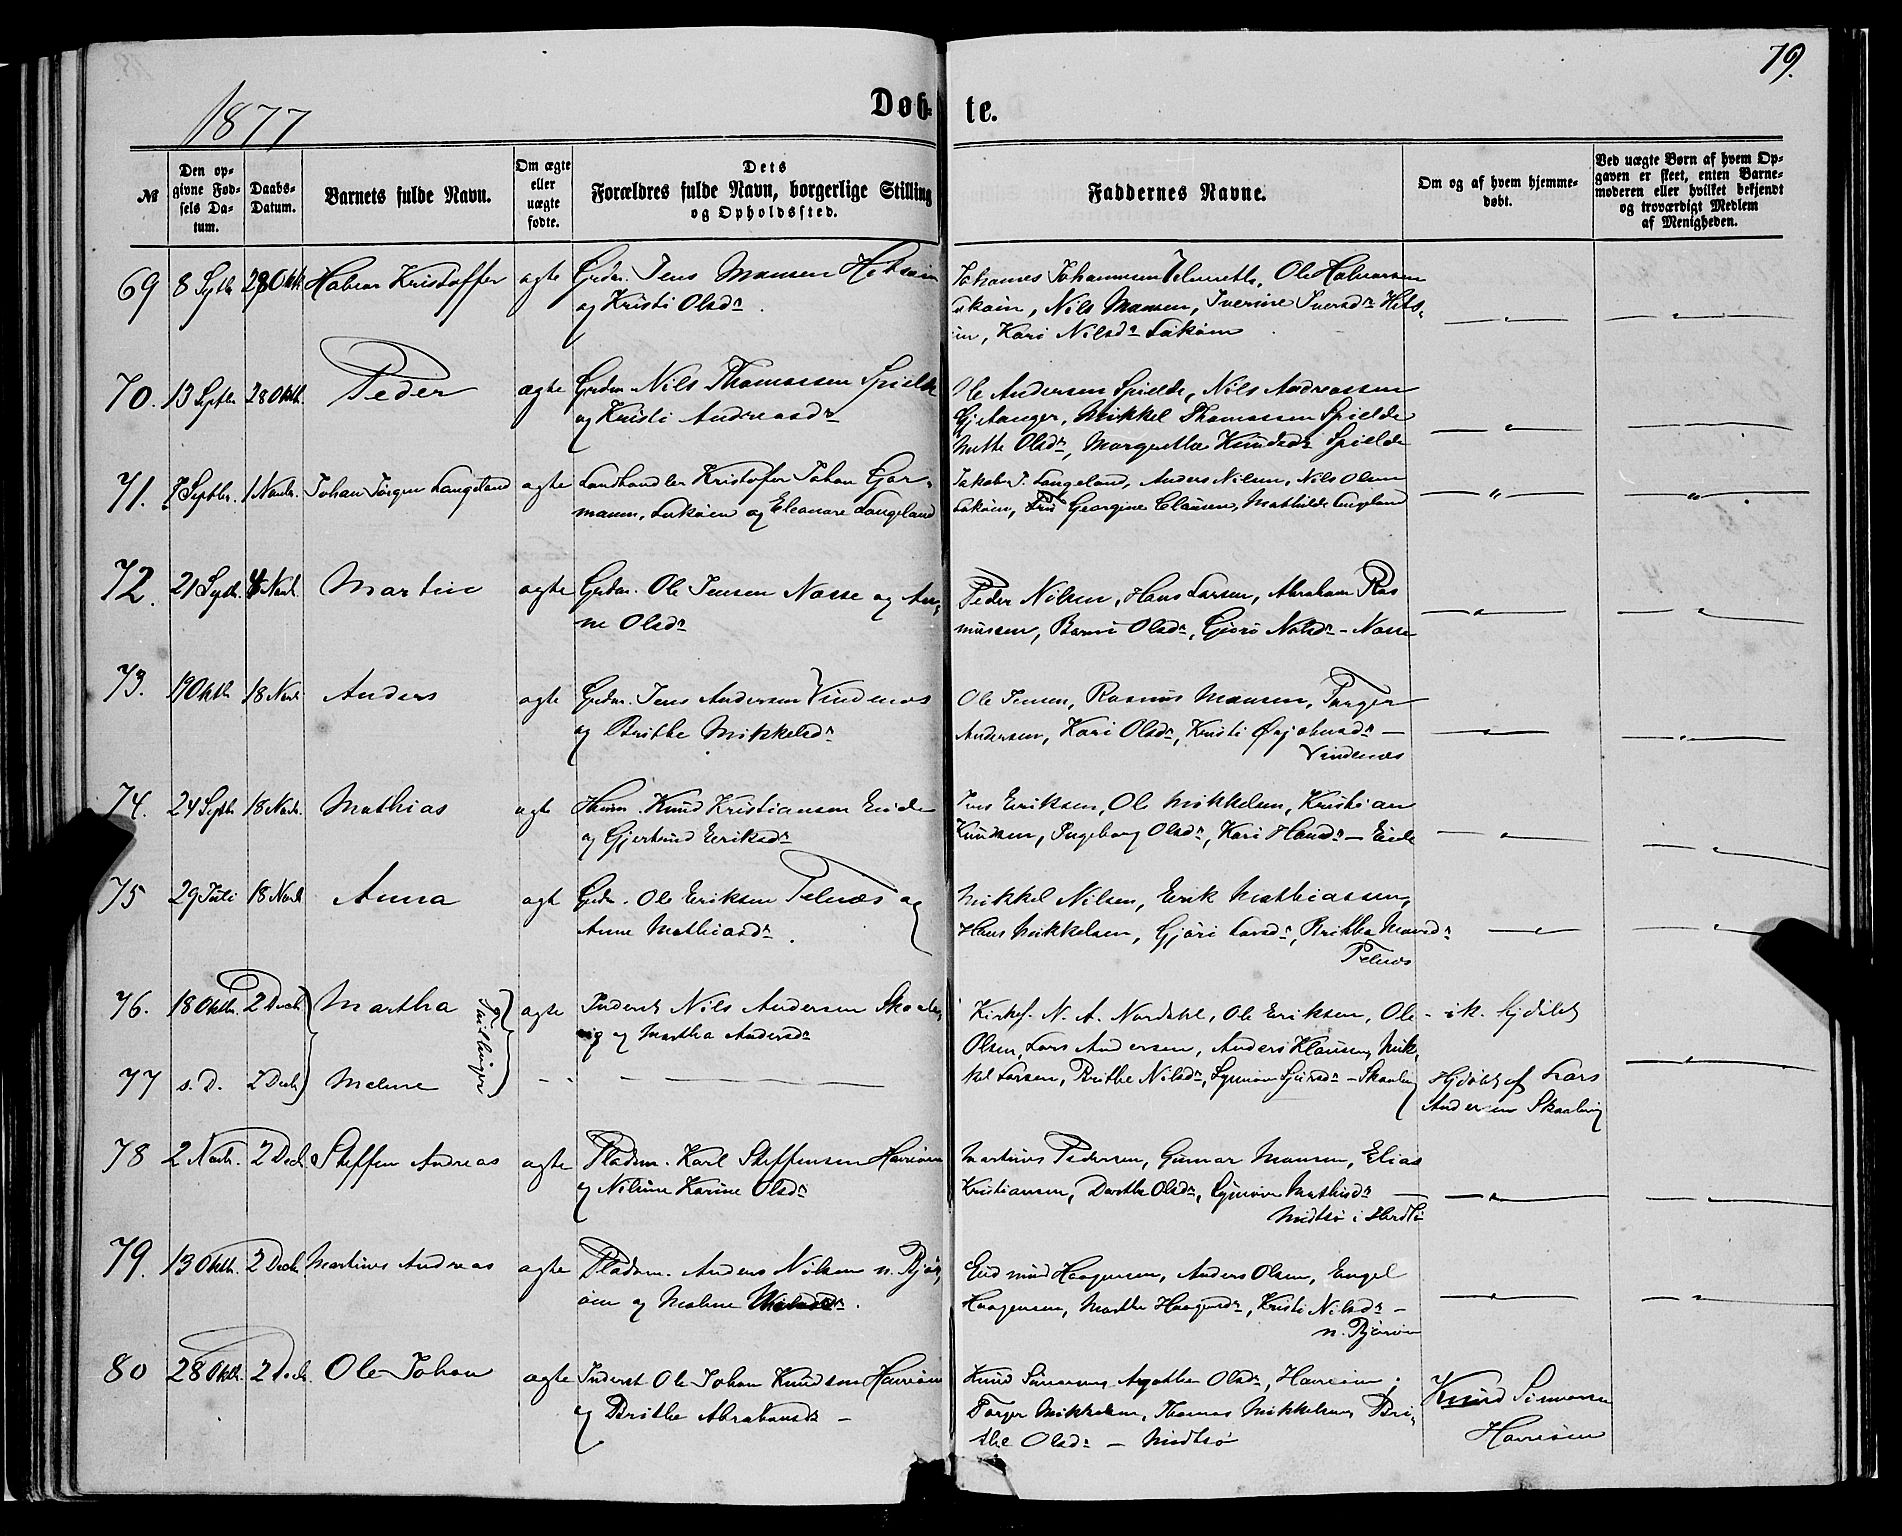 79.
1877
Døb- te.
№
Den opgivne Fødsels Datum.
Daabs-Datum.
Barnets fulde Navn.
Om ægte eller uægte fødte.
Dets Forældres fulde Navn, borgerlige Stilling og Opholdssted.
Faddernes Navne.
Om og af hvem hjemmedøbt.
Ved uægte Børn af hvem Opgaven er skeet, enten Barnemoderen eller hvilket bekjendt og troværdigt Medlem af Menigheden.
69 8 Septbr 28 Oktb Kristoffer ægte Grdm. Jens Monsen
og Kristi Olsdr.
Johannes Johannesen Ole Halvorsen
Nils Monsen, Iverine Iversdr
Kari Nilsdr
70. 13 Septbr 28 Oktb. Peder ægte Grdm. Nils Thomassen Spielde
og Kristi Andreasdr
Ole Andersen Spielde, Nils Andreassen
Gjetanger, Mikkel Thomassen Spielde
Mette Olsdr, Margrethe Knudsdr Spielde
71. 8 Septbr. 1 Novbr. Johan Jørgen Langeland ægte Landhandler Kristofer Johan Gor-
mann, og Eleonore Langeland
Jakob J. Langeland, Anders Nilsen, Nils Olsen
Georgine Clausen, Mathilde Langeland
72. 21 Septb. 4 Novb. Martin ægte Grdm. Ole Jensen Nosse og An-
ne Olsdr
Peder Nilsen, Hans Larsen, Abraham Ras
mussen, Olsdr, Gjøri Nilsdr - Nosse
73. 19 Oktb 18 Novb Anders ægte Grdm. Jens Andersen Vindenes
og Brithe Mikkelsdr
Ole Jensen, Rasmus Monsen, Torger
Andersen, Kari Olsdr, Kristi
Vindenes
74. 24 Septb 18 Novb. Mathias ægte Knud Kristiansen Eide
og Gjertrud Eriksdr
Jens Eriksen, Ole Mikkelsen, Kristian
Knudsen, Ingeborg Olsdr, Kari Hansdr - Eide
75 29 Juli 18 Novb Anna ægte Grdm. Ole Eriksen Telnæs og
Anne Mathiasdr.
Mikkel Nilsen, Erik Mathiassen,
Hans Mikkelsen, Gjøri Larsdr, Brithe Monsdr
Telnæs
76. 18 Oktbr. 2 Decb. Martha Tvillinger ægte Inderst Nils Andersen Skaale
vig og Martha Andersdr
Kirkes. N. A. Nordahl, Ole Eriksen, Ole
Olsen, Lars Andersen, Anders Klausen, Mik-
- ik. hjdøbt
77 s. D. 2 Decb Malene
kel Larsen, Brithe Nilsdr, Synnøve Sjursdr - Skaalevig
Hjdøbt af Lars
Andersen Skaalevig
78 2 Novb. 2 Decb. Steffen Andreas ægte Pladsm. Karl Steffensen Havrøen
og Nilsine Karine Olsdr
Martinus Pedersen, Gunnar Monsen, Elias
Kristiansen, Dorthe Olsdr, Synnøve Mathisdr
Midtsø i Herdlø
79. 13 Oktb. 2 Decb. Martinus Andreas ægte Pladsm. Anders Nilsen n. Bjor-
øen og Malene
Gudmund Haagensen, Anders Olsen, Engel
Haagensen, Marthe Haagensdr, Kristi Nilsdr -
n. Bjorøen
80 28 Oktb. 2 Decb. Ole Johan ægte Inderst Ole Johan Knudsen Havrøen
og Brithe Abrahamsdr -
Knud Simonsen, Agathe Olsdr, Havrøen;
Torger Mikkelsen, Thomas Mikkelsen, Bri-
the Olsdr - Midtsø
Knud Simonsen
Havrøen